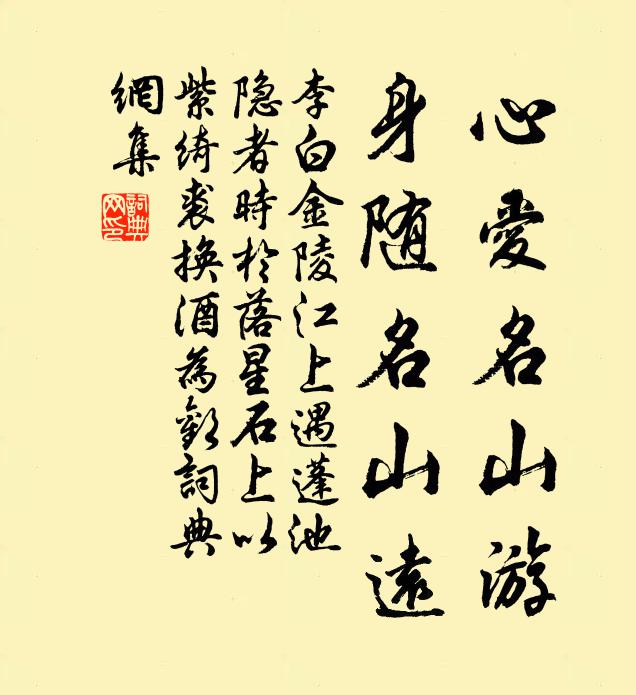 心愛名山游
身随名山遠
李白金陵江上遇蓬池
隐者時於落星石上以
紫绮裘换酒為歡詞典
網集
詞典
网印